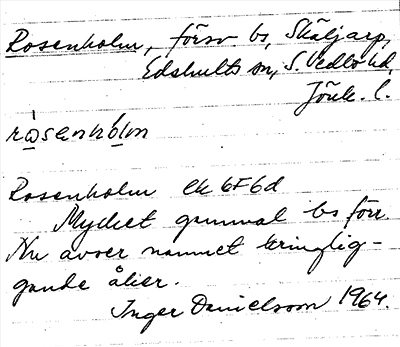 Rosenholm, försv. bs, Skäljarp,
Edshults sn, S. Vedbo hd,
Jönk. l.
rosenholm
Rosenholm ek 6F6d
Mycket gammal bs förr.
Nu avser namnet kringlig-
gande åker.
Inger Danielsson 1964.